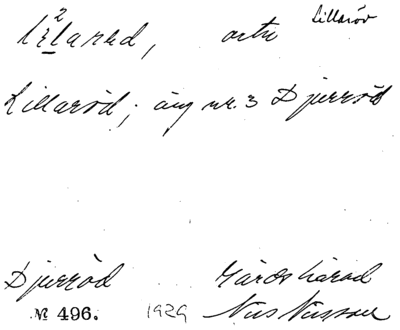 li²lared, ortn Lillaröv
Lillaröd; äng nr. 3 Djurröd
Djurröd Gärds härad
№ 496. 1929 Nils Nilsson